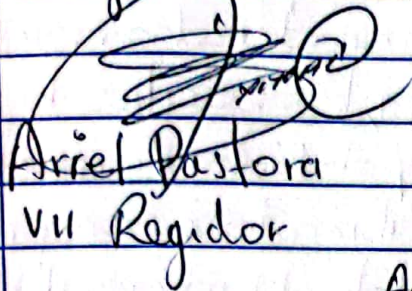 Ariel Pastora
VII Regidor